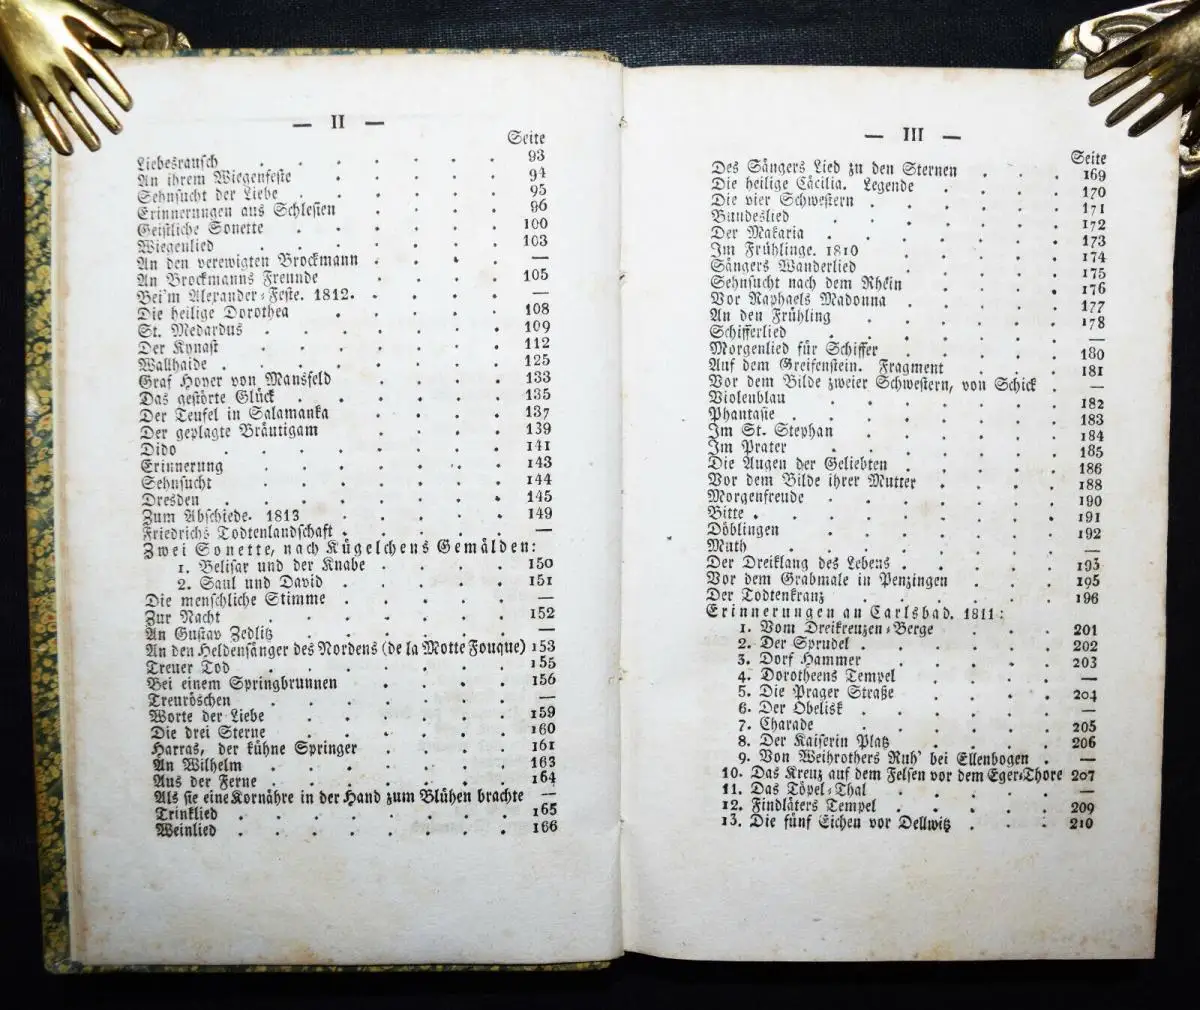 — II —
Seite
Liebesrausch . . . . . . . 93
An ihrem Wiegenfeste . . . . . 94
Sehnsucht der Liebe . . . . . . 95
Erinnerungen aus Schlesien . . . . 96
Geistliche Sonette . . . . . . 100
Wiegenlied . . . . . . . 103
An den verewigten Brockmann . . . . —
An Brockmanns Freunde . . . . . 105
Bei'm Alexander-Feste. 1812. . . . . —
Die heilige Dorothea . . . . . 108
St. Medardus . . . . . . . 109
Der Kynast . . . . . . . 112
Wallhaide . . . . . . . . 125
Graf Hoyer von Mansfeld . . . . 133
Das gestörte Glück . . . . . . 135
Der Teufel in Salamanka . . . . 137
Der geplagte Bräutigam . . . . 139
Dido . . . . . . . . 141
Erinnerung . . . . . . . 143
Sehnsucht . . . . . . . 144
Dresden . . . . . . . . 145
Zum Abschiede. 1813 . . . . . 149
Friedrichs Todtenlandschaft . . . . . —
Zwei Sonette, nach Kügelchens Gemälden:
1. Belisar und der Knabe . . . . 150
2. Saul und David . . . . . 151
Die menschliche Stimme . . . . . —
Zur Nacht . . . . . . . 152
An Gustav Zedlitz . . . . . . —
An den Heldensänger des Nordens (de la Motte Fouque) 153
Treuer Tod . . . . . . . 155
Bei einem Springbrunnen . . . . 156
Treuröschen . . . . . . . —
Worte der Liebe . . . . . . 159
Die drei Sterne . . . . . . 160
Harras, der kühne Springer . . . . 161
An Wilhelm . . . . . . . 163
Aus der Ferne . . . . . . . 164
Als sie eine Kornähre in der Hand zum Blühen brachte —
Trinklied . . . . . . . . 165
Weinlied . . . . . . . . 166
— III —
Seite
Des Sängers Lied zu den Sternen . . . 169
Die heilige Cäcilia. Legende . . . . 170
Die vier Schwestern . . . . . . 171
Bundeslied . . . . . . . 172
Der Makaria . . . . . . . 173
Im Frühlinge. 1810 . . . . . . 174
Sängers Wanderlied . . . . . . 175
Sehnsucht nach dem Rhein . . . . 176
Vor Raphaels Madonna . . . . . 177
An den Frühling . . . . . . 178
Schifferlied . . . . . . . —
Morgenlied für Schiffer . . . . . 180
Auf dem Greifenstein. Fragment . . . 181
Vor dem Bilde zweier Schwestern, von Schick . —
Violenblau . . . . . . . 182
Phantasie . . . . . . . . 183
Im St. Stephan . . . . . . 184
Im Prater . . . . . . . 185
Die Augen der Geliebten . . . . . 186
Vor dem Bilde ihrer Mutter . . . . 188
Morgenfreude . . . . . . . 190
Bitte . . . . . . . . . 191
Döblingen . . . . . . . 192
Muth . . . . . . . . —
Der Dreiklang des Lebens . . . . . 193
Vor dem Grabmale in Penzingen . . . 195
Der Todtenkranz . . . . . . 196
Erinnerungen an Carlsbad. 1811:
1. Vom Dreikreuzen-Berge . . . 201
2. Der Sprudel . . . . . . 202
3. Dorf Hammer . . . . . 203
4. Dorotheens Tempel . . . . —
5. Die Prager Straße . . . . 204
6. Der Obelisk . . . . . . —
7. Charade . . . . . . 205
8. Der Kaiserin Platz . . . . 206
9. Von Weihrothers Ruh' bei Ellenbogen . —
10. Das Kreuz auf dem Felsen vor dem Eger-Thore 207
11. Das Töpel-Thal . . . . . —
12. Findlaters Tempel . . . . . 209
13. Die fünf Eichen vor Dellwitz . . . 210